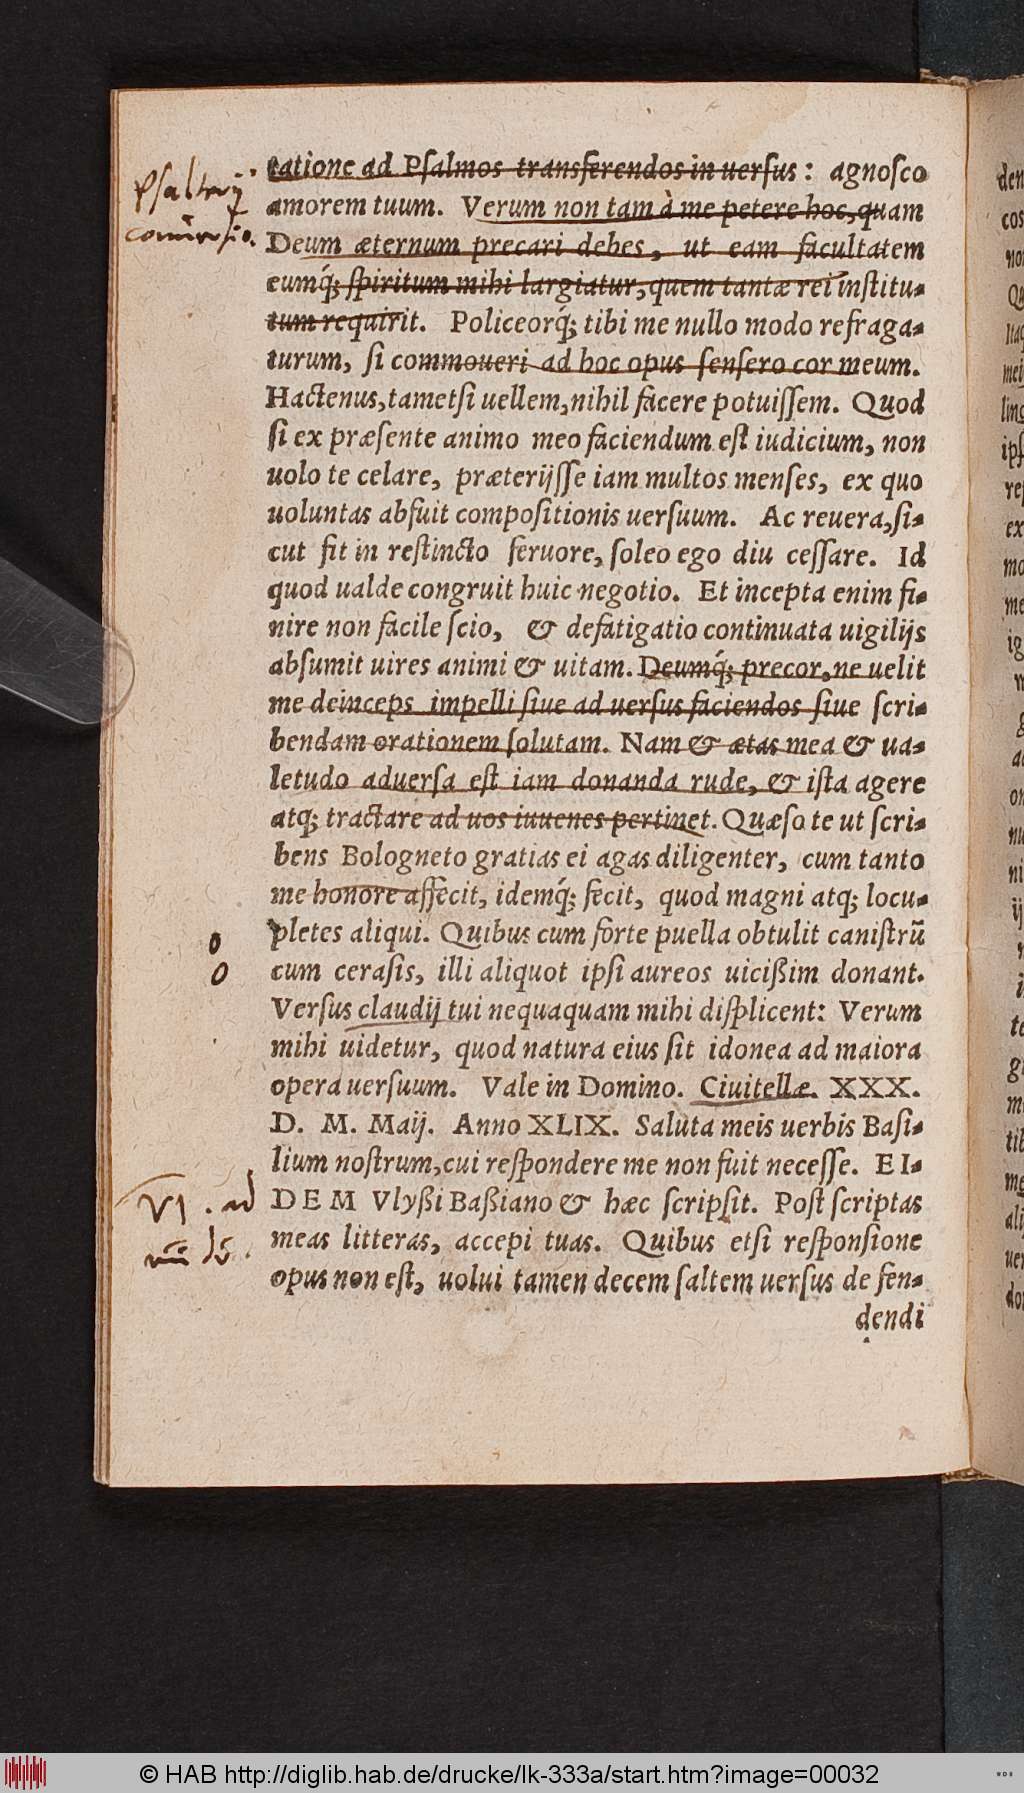 tatione ad Pſalmos transferendos in uerſus: agnoſco
Pſalterij
amorem tuum. Verum non tam à me petere hoc, quam
conuerſio.
Deum æternum precari debes, ut eam facultatem
eumq́; ſpiritum mihi largiatur, quem tantæ rei inſtitu-
tum requirit. Policeorq́; tibi me nullo modo refraga-
turum, ſi commoueri ad hoc opus ſenſero cor meum.
Hactenus, tametſi uellem, nihil facere potuiſſem. Quod
ſi ex præſente animo meo faciendum eſt iudicium, non
uolo te celare, præterijſſe iam multos menſes, ex quo
uoluntas abfuit compoſitionis uerſuum. Ac reuera, ſi-
cut fit in reſtincto feruore, ſoleo ego diu ceſſare. Id
quod ualde congruit huic negotio. Et incepta enim fi-
nire non facile ſcio, & defatigatio continuata uigilijs
abſumit uires animi & uitam. Deumq́; precor, ne uelit
me deinceps impelli ſiue ad uerſus faciendos ſiue ſcri-
bendam orationem ſolutam. Nam & ætas mea & ua-
letudo aduerſa eſt iam donanda rude, & iſta agere
atq; tractare ad uos iuuenes pertinet. Quæſo te ut ſcri-
bens Bologneto gratias ei agas diligenter, cum tanto
me honore affecit, idemq́; fecit, quod magni atq; locu-
pletes aliqui. Quibus cum forte puella obtulit caniſtrū
cum ceraſis, illi aliquot ipſi aureos uicißim donant.
Verſus claudij tui nequaquam mihi diſplicent: Verum
mihi uidetur, quod natura eius ſit idonea ad maiora
opera uerſuum. Vale in Domino. Ciuitellæ. XXX.
D. M. Maij. Anno XLIX. Saluta meis uerbis Baſi-
lium noſtrum, cui reſpondere me non fuit neceſſe. EI-
VI. ad
DEM Vlyßi Baßiano & hæc ſcripſit. Poſt ſcriptas
meas litteras, accepi tuas. Quibus etſi reſponſione
opus non eſt, uolui tamen decem ſaltem uerſus de fen-
dendi
© HAB http://diglib.hab.de/drucke/lk-333a/start.htm?image=00032